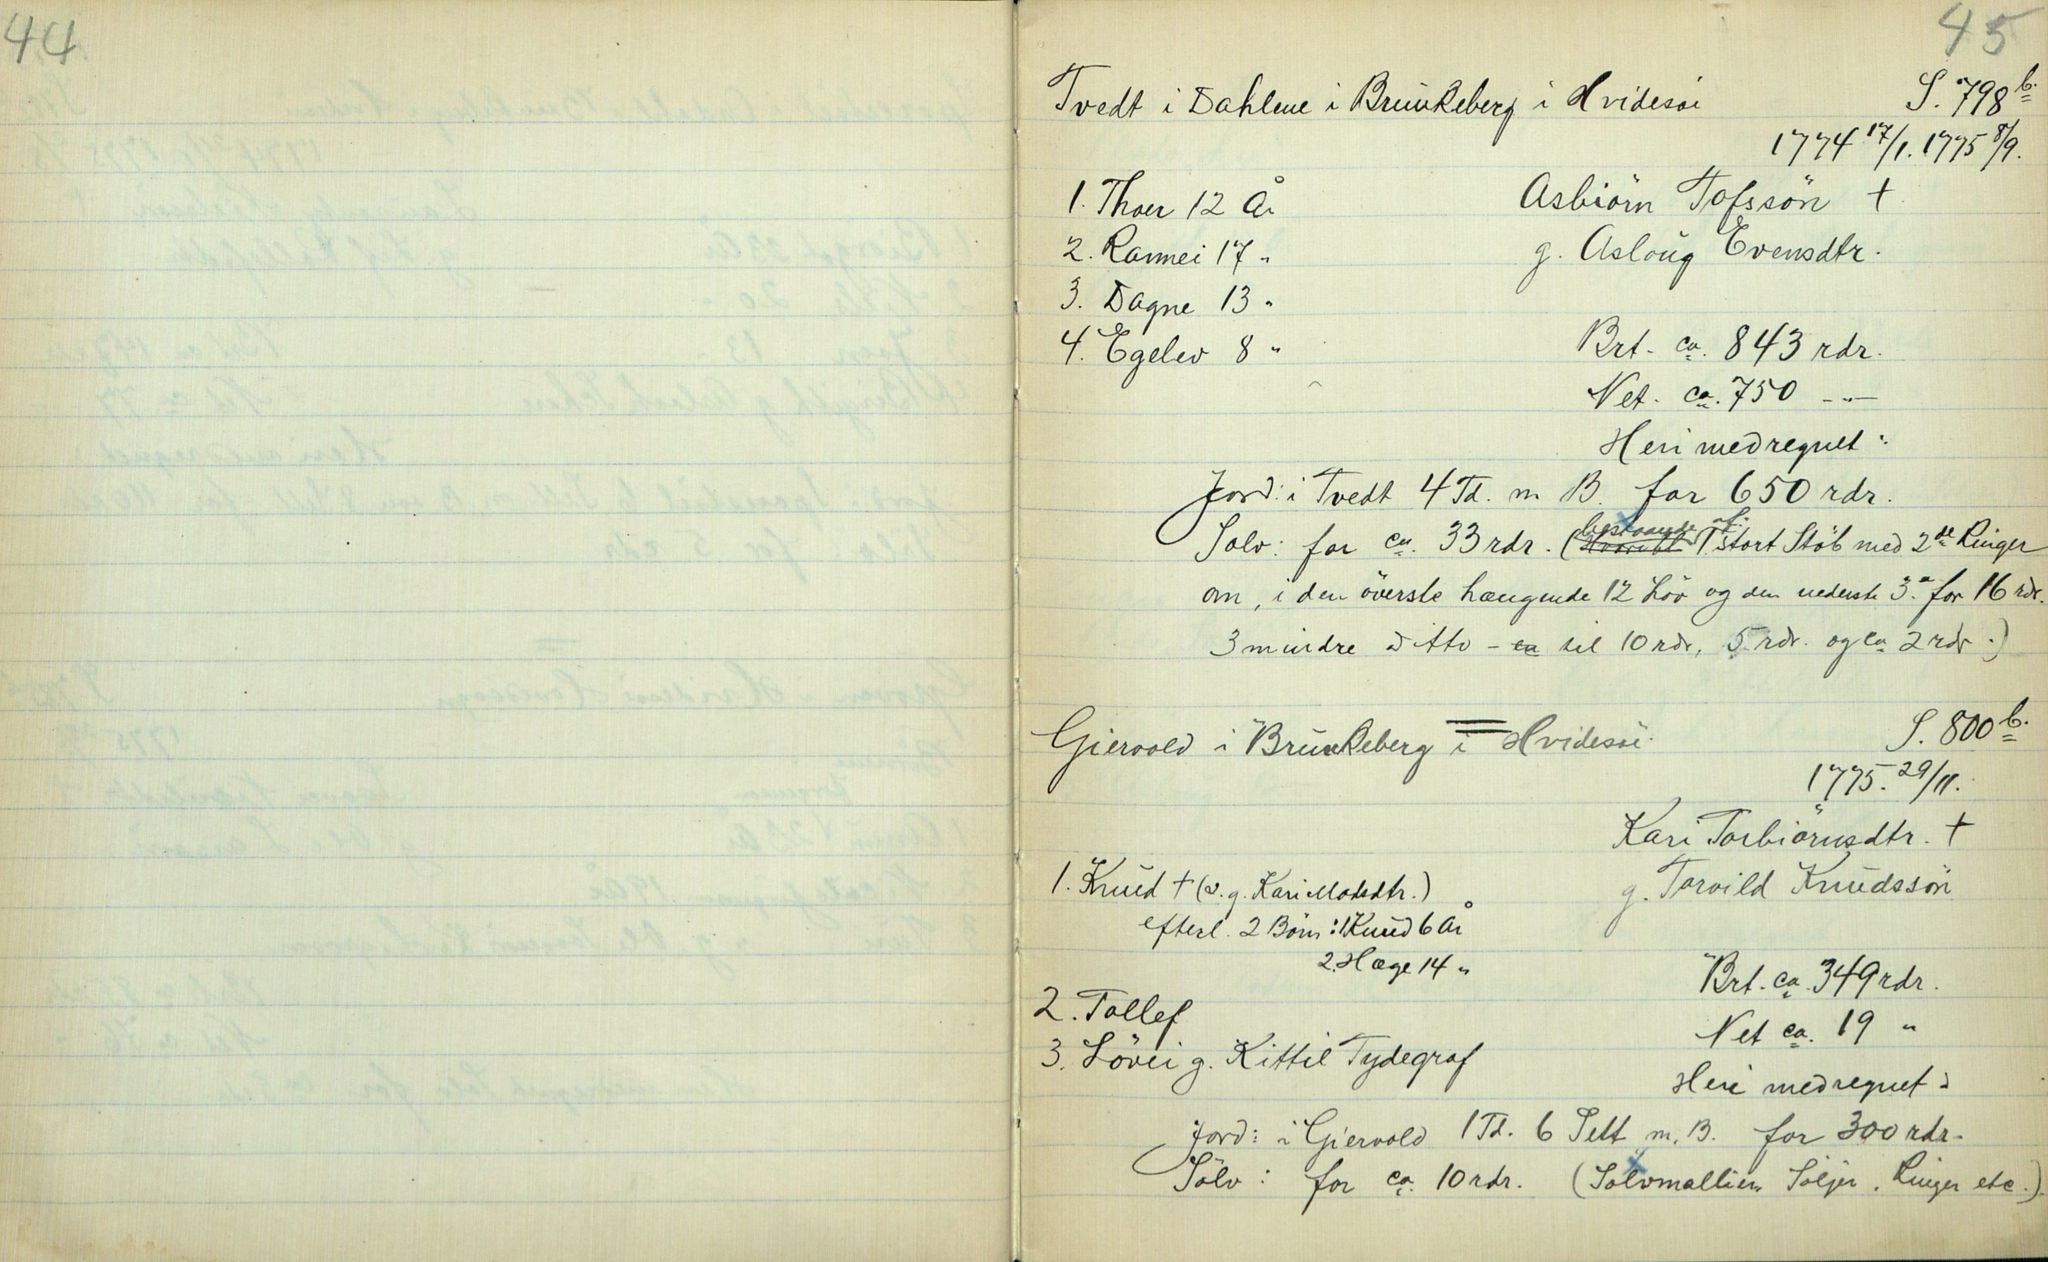 44
45
Tvedt i Dahlene i Brunkeberg i Hvidesøi S. 798 b.
1774 17/1. 1775 8/9.
1. Thoer 12 År Asbiörn Tofssön †
2. Rannei 17 " g. Asloug Evensdtr.
3. Dagne 13 "
4. Egelev 8 " Brt. ca. 843 rdr.
Net. ca. 750 -"-
Heri medregnet:
Jord: i Tvedt 4 Td. m B. for 650 rdr.
Sølv: for ca. 33 rdr. (bestaaende af: 1 stort Stöb med 2de Ringer
om, i den överste hængende 12 Löv og den nederste 3. for 16 rdr.
3 mindre ditto - ca til 10 rdr, 5 rdr. og ca 2 rdr.)
Giervold i Brunkeberg i Hvidesöi. S. 800 b.
1775. 29/11.
Kari Torbiörnsdtr. †
1. Knud † (v. g. Kari Matsdtr.) g. Torvild Knudssön
efterl. 2 Börn: 1 Knud 6 År
2. Hæge 14 " Brt. ca. 349 rdr.
2. Tollef Net ca. 19 "
3. Lövei g. Kittil Tydegraf
Heri medregnet:
Jord: i Giervold 1 Td. 6 Sett m. B. for 300 rdr.
Sölv: for ca. 10 rdr. (Sølvmallier, Söljer, Ringer etc.).